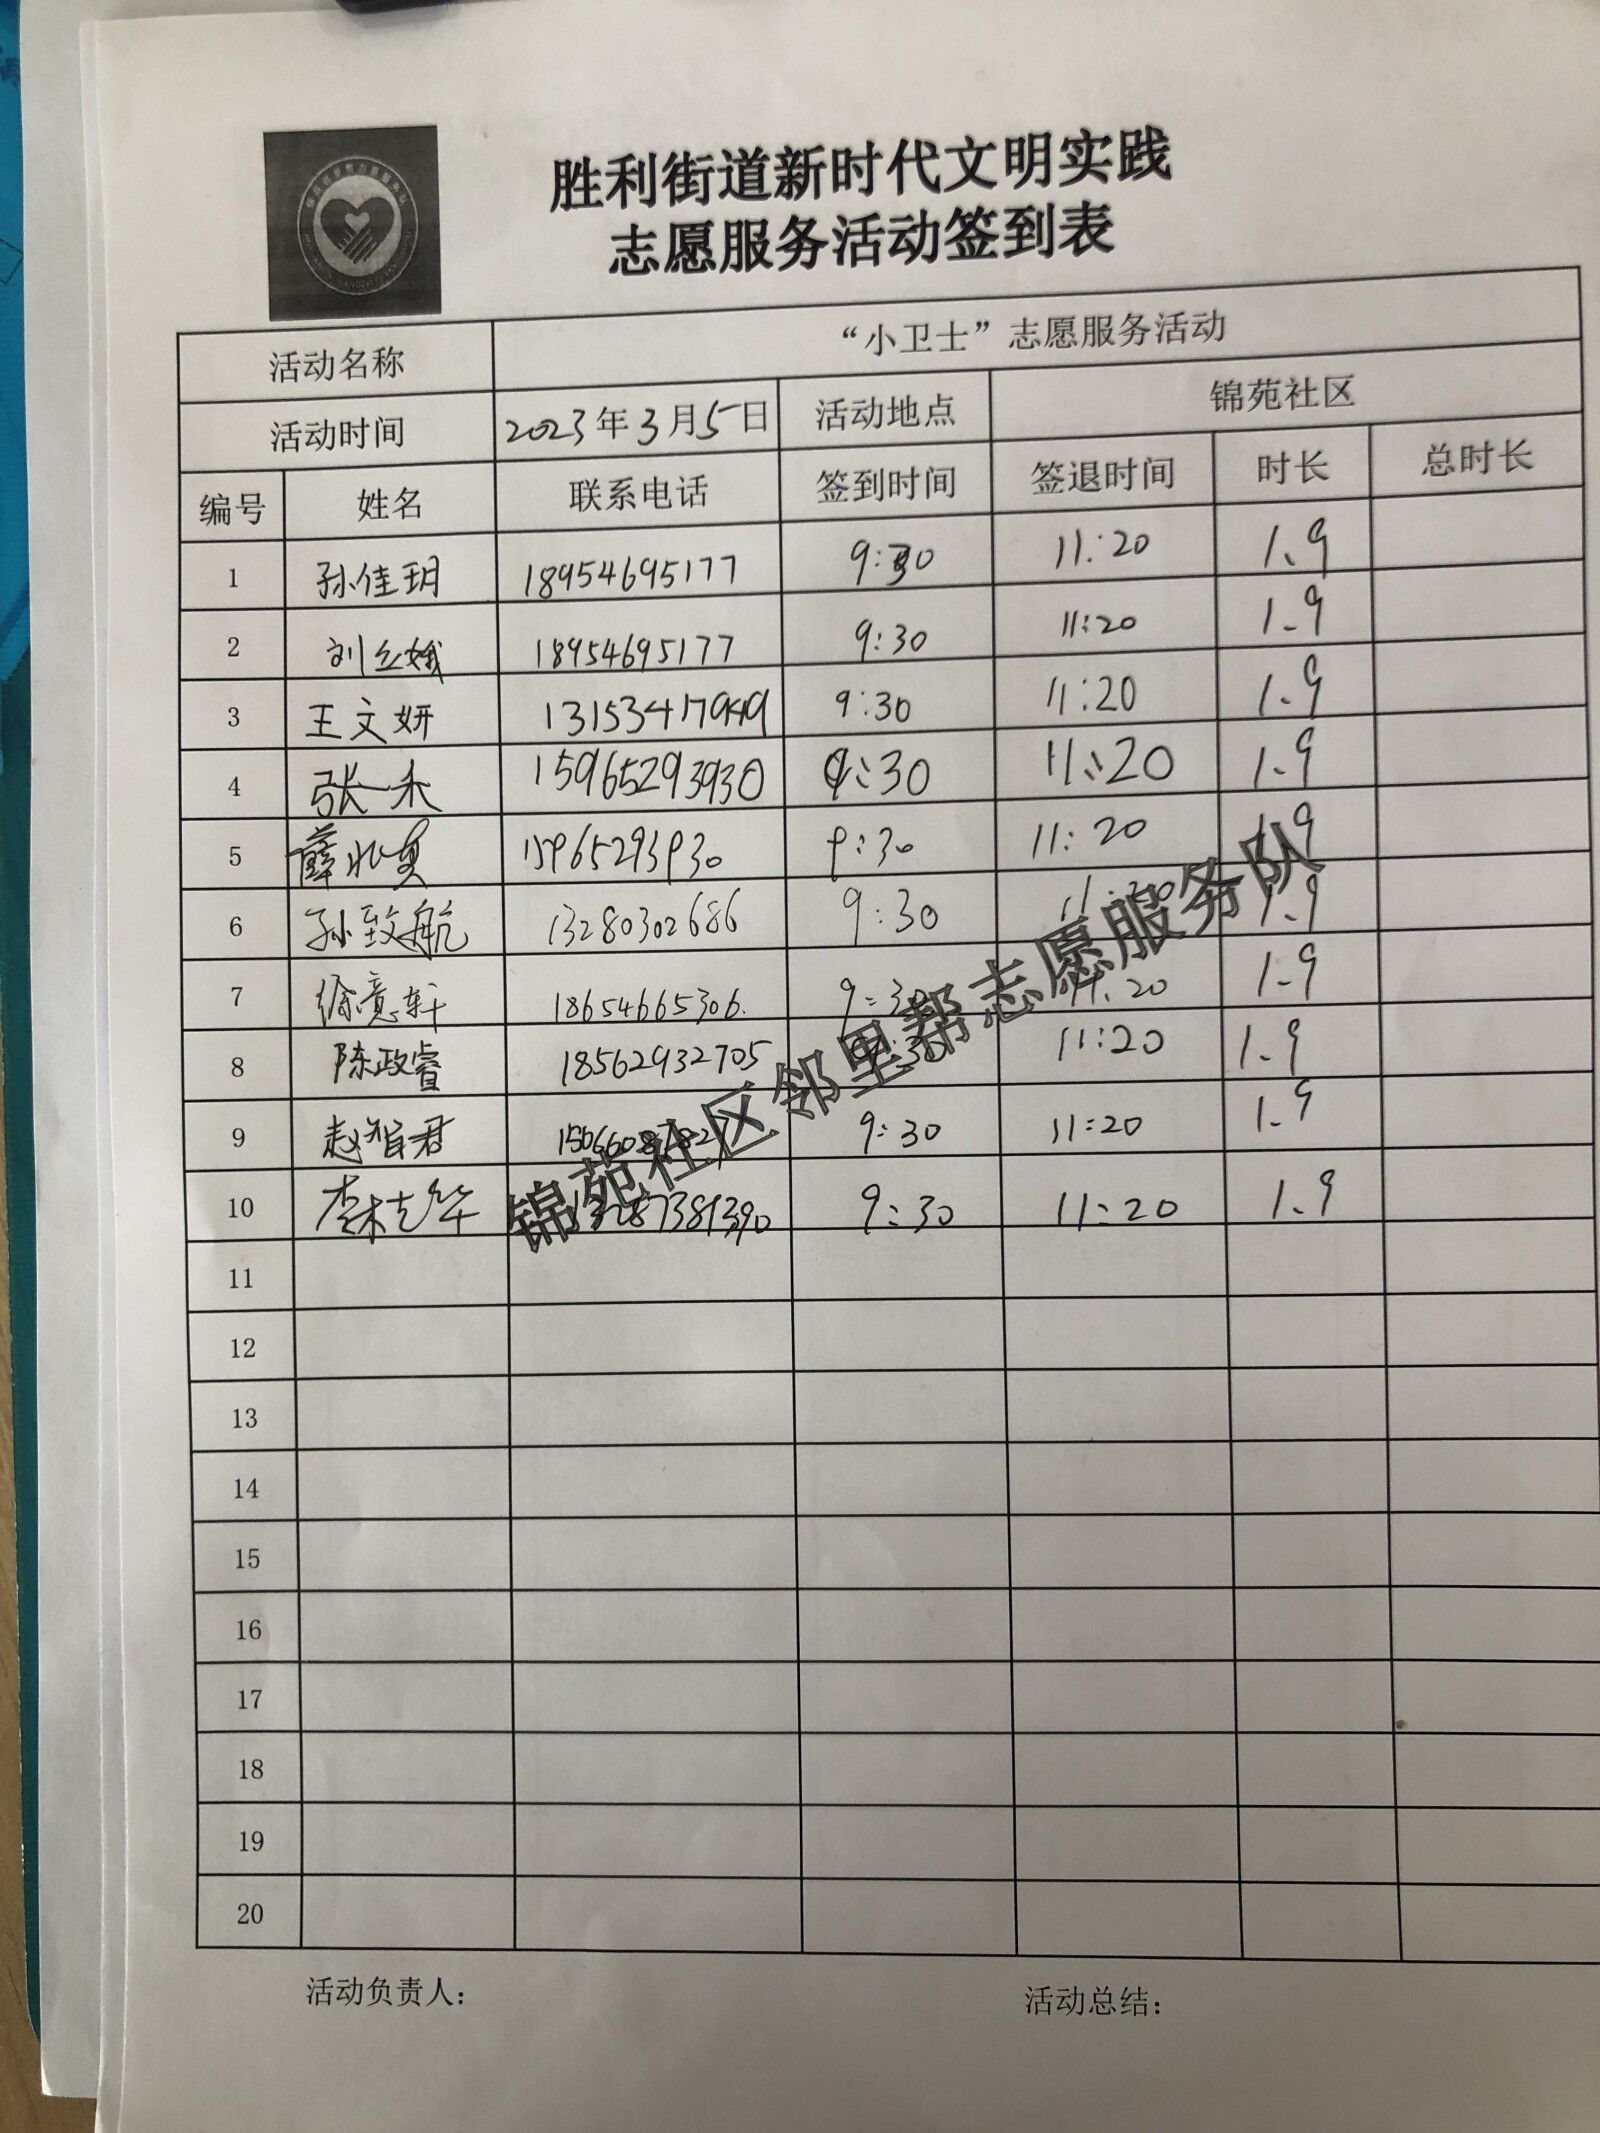 胜利街道新时代文明实践
志愿服务活动签到表
活动名称 “小卫士”志愿服务活动
活动时间 2023年3月5日 活动地点 锦苑社区
编号 姓名 联系电话 签到时间 签退时间 时长 总时长
1 孙佳玥 18954695177 9:30 11:20 1.9
2 刘立娥 18954695177 9:30 11:20 1.9
3 王文妍 9:30 11:20 1.9
4 张一禾 15965293930 9:30 11:20 1.9
5 薛 15965293930 9:30 11:20 1.9
6 孙致航 13280302686 9:30 11:20 1.9
7 徐意轩 18654665306. 9:30 11:20 1.9
8 陈政睿 18562932705 9:30 11:20 1.9
9 赵智君 9:30 11:20 1.9
10 9:30 11:20 1.9
锦苑社区邻里帮志愿服务队
11
12
13
14
15
16
17
18
19
20
活动负责人: 活动总结: